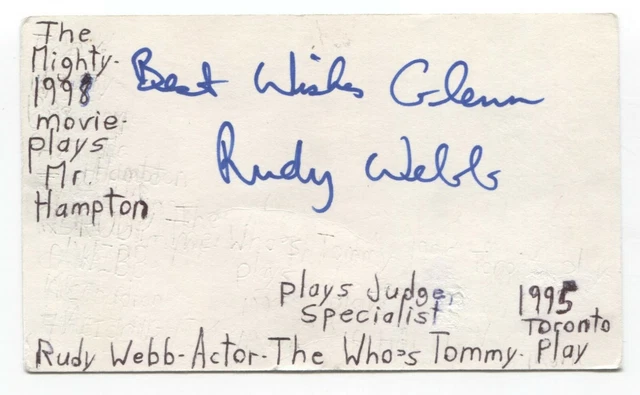 The
Mighty-
1998
movie-
plays
Mr.
Hampton
Best Wishes Glenn
Rudy Webb
plays Judge,
Specialist
1995
Toronto
Rudy Webb-Actor-The Who's Tommy- Play